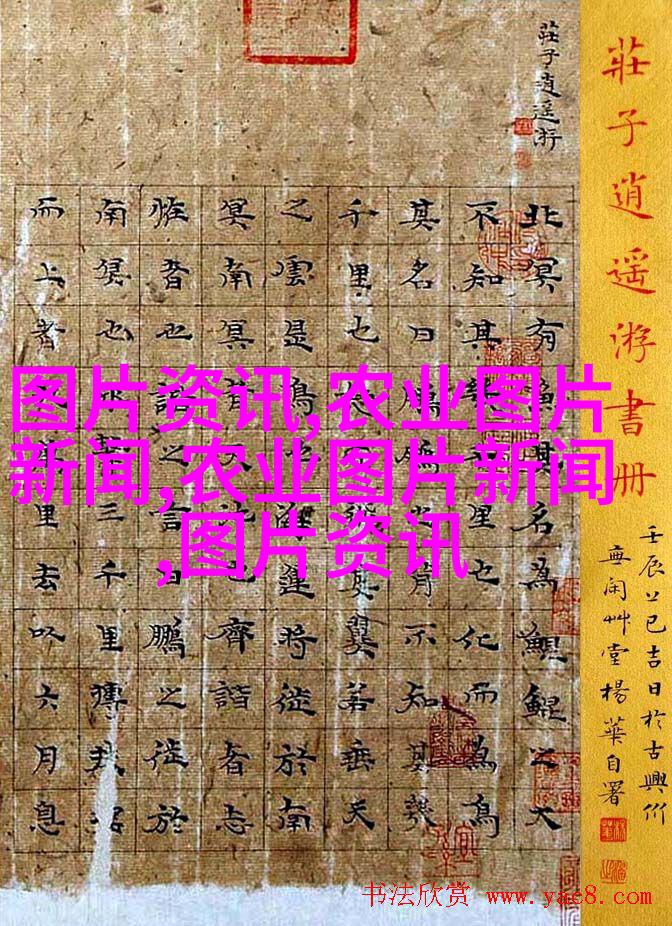 莊子逍遥游書册
壬辰乙巳吉日於古興竹
無閑艸堂楊華自署
莊子逍遥游
北冥有魚其名為鯤鯤之大
不知其幾千里也化而為鳥
其名曰鵬鵬之背不知其幾
千里也怒而飛其翼若垂天
之雲是鳥也海運將徙於南
冥南冥者天池也齊諧者志
怪者也諧之言曰鵬之徙於
南冥也水擊三千里摶扶搖
而上者九萬里去以六月息
图片资讯,农业图片
新闻,农业图片新闻
,图片资讯
书法欣赏 www.yac8.com